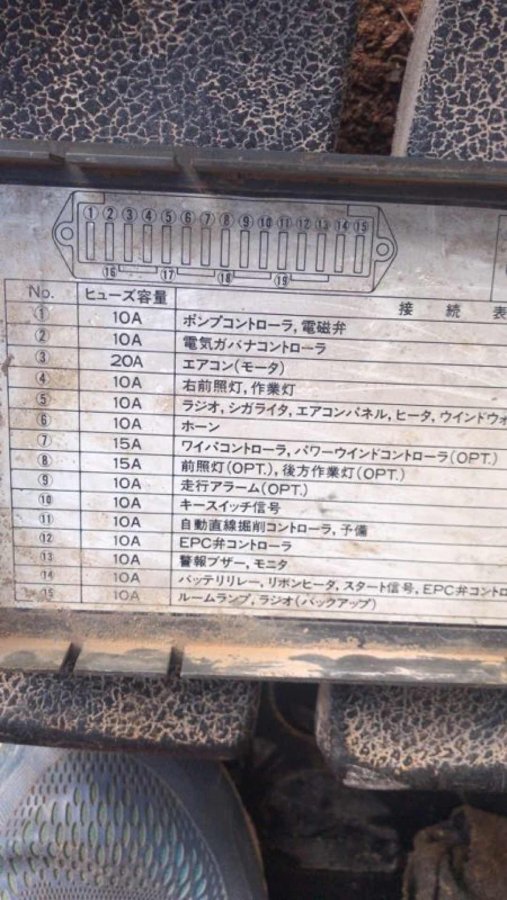 ① ② ③ ④ ⑤ ⑥ ⑦ ⑧ ⑨ ⑩ ⑪ ⑫ ⑬ ⑭ ⑮
⑯ ⑰ ⑱ ⑲
No. ヒューズ容量 接続表
① 10A ポンプコントローラ, 電磁弁
② 10A 電気ガバナコントローラ
③ 20A エアコン(モータ)
④ 10A 右前照灯, 作業灯
⑤ 10A ラジオ, シガライタ, エアコンパネル, ヒータ, ウインドウォ
⑥ 10A ホーン
⑦ 15A ワイパコントローラ, パワーウインドコントローラ(OPT.)
⑧ 15A 前照灯(OPT.), 後方作業灯(OPT.)
⑨ 10A 走行アラーム(OPT.)
⑩ 10A キースイッチ信号
⑪ 10A 自動直線掘削コントローラ, 予備
⑫ 10A EPC弁コントローラ
13 10A 警報ブザー, モニタ
14 10A バッテリリレー, リボンヒータ, スタート信号, EPC弁コントロ
15 10A ルームランプ, ラジオ(バックアップ)